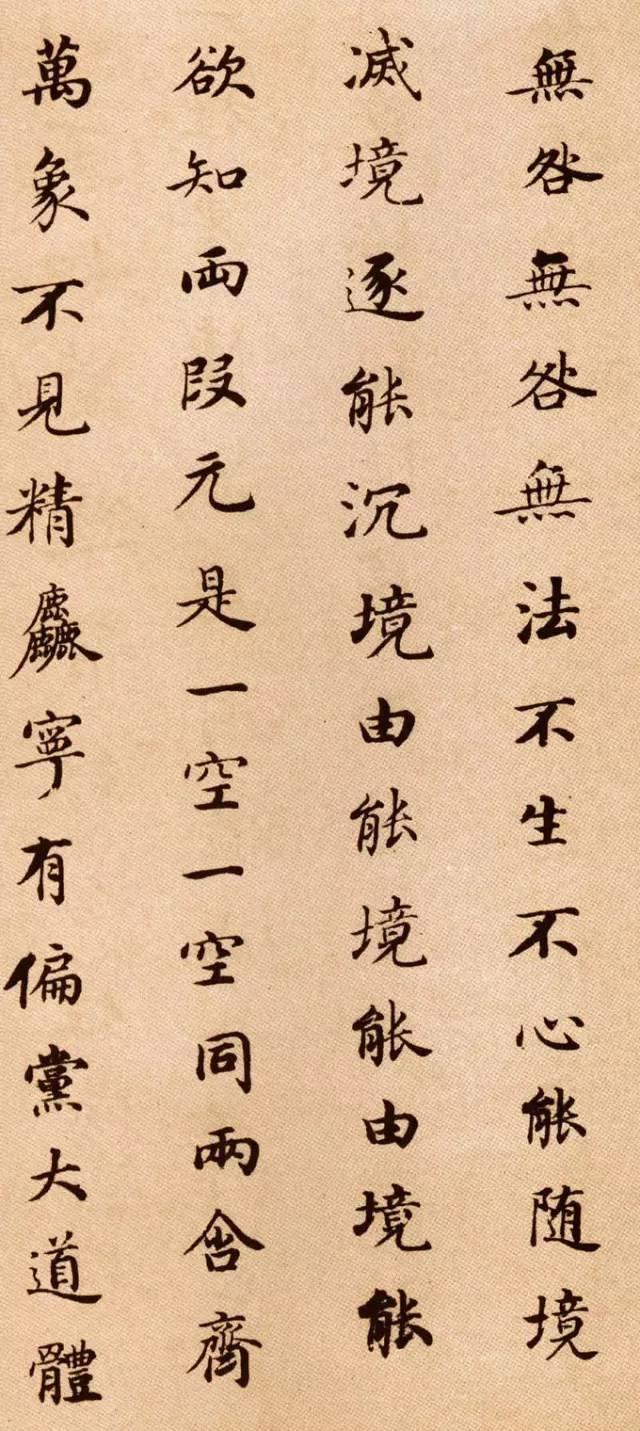 無咎無咎無法不生不心能随境
滅境逐能沉境由能境能由境能
欲知両段元是一空一空同兩含齊
萬象不見精麤寧有偏黨大道體